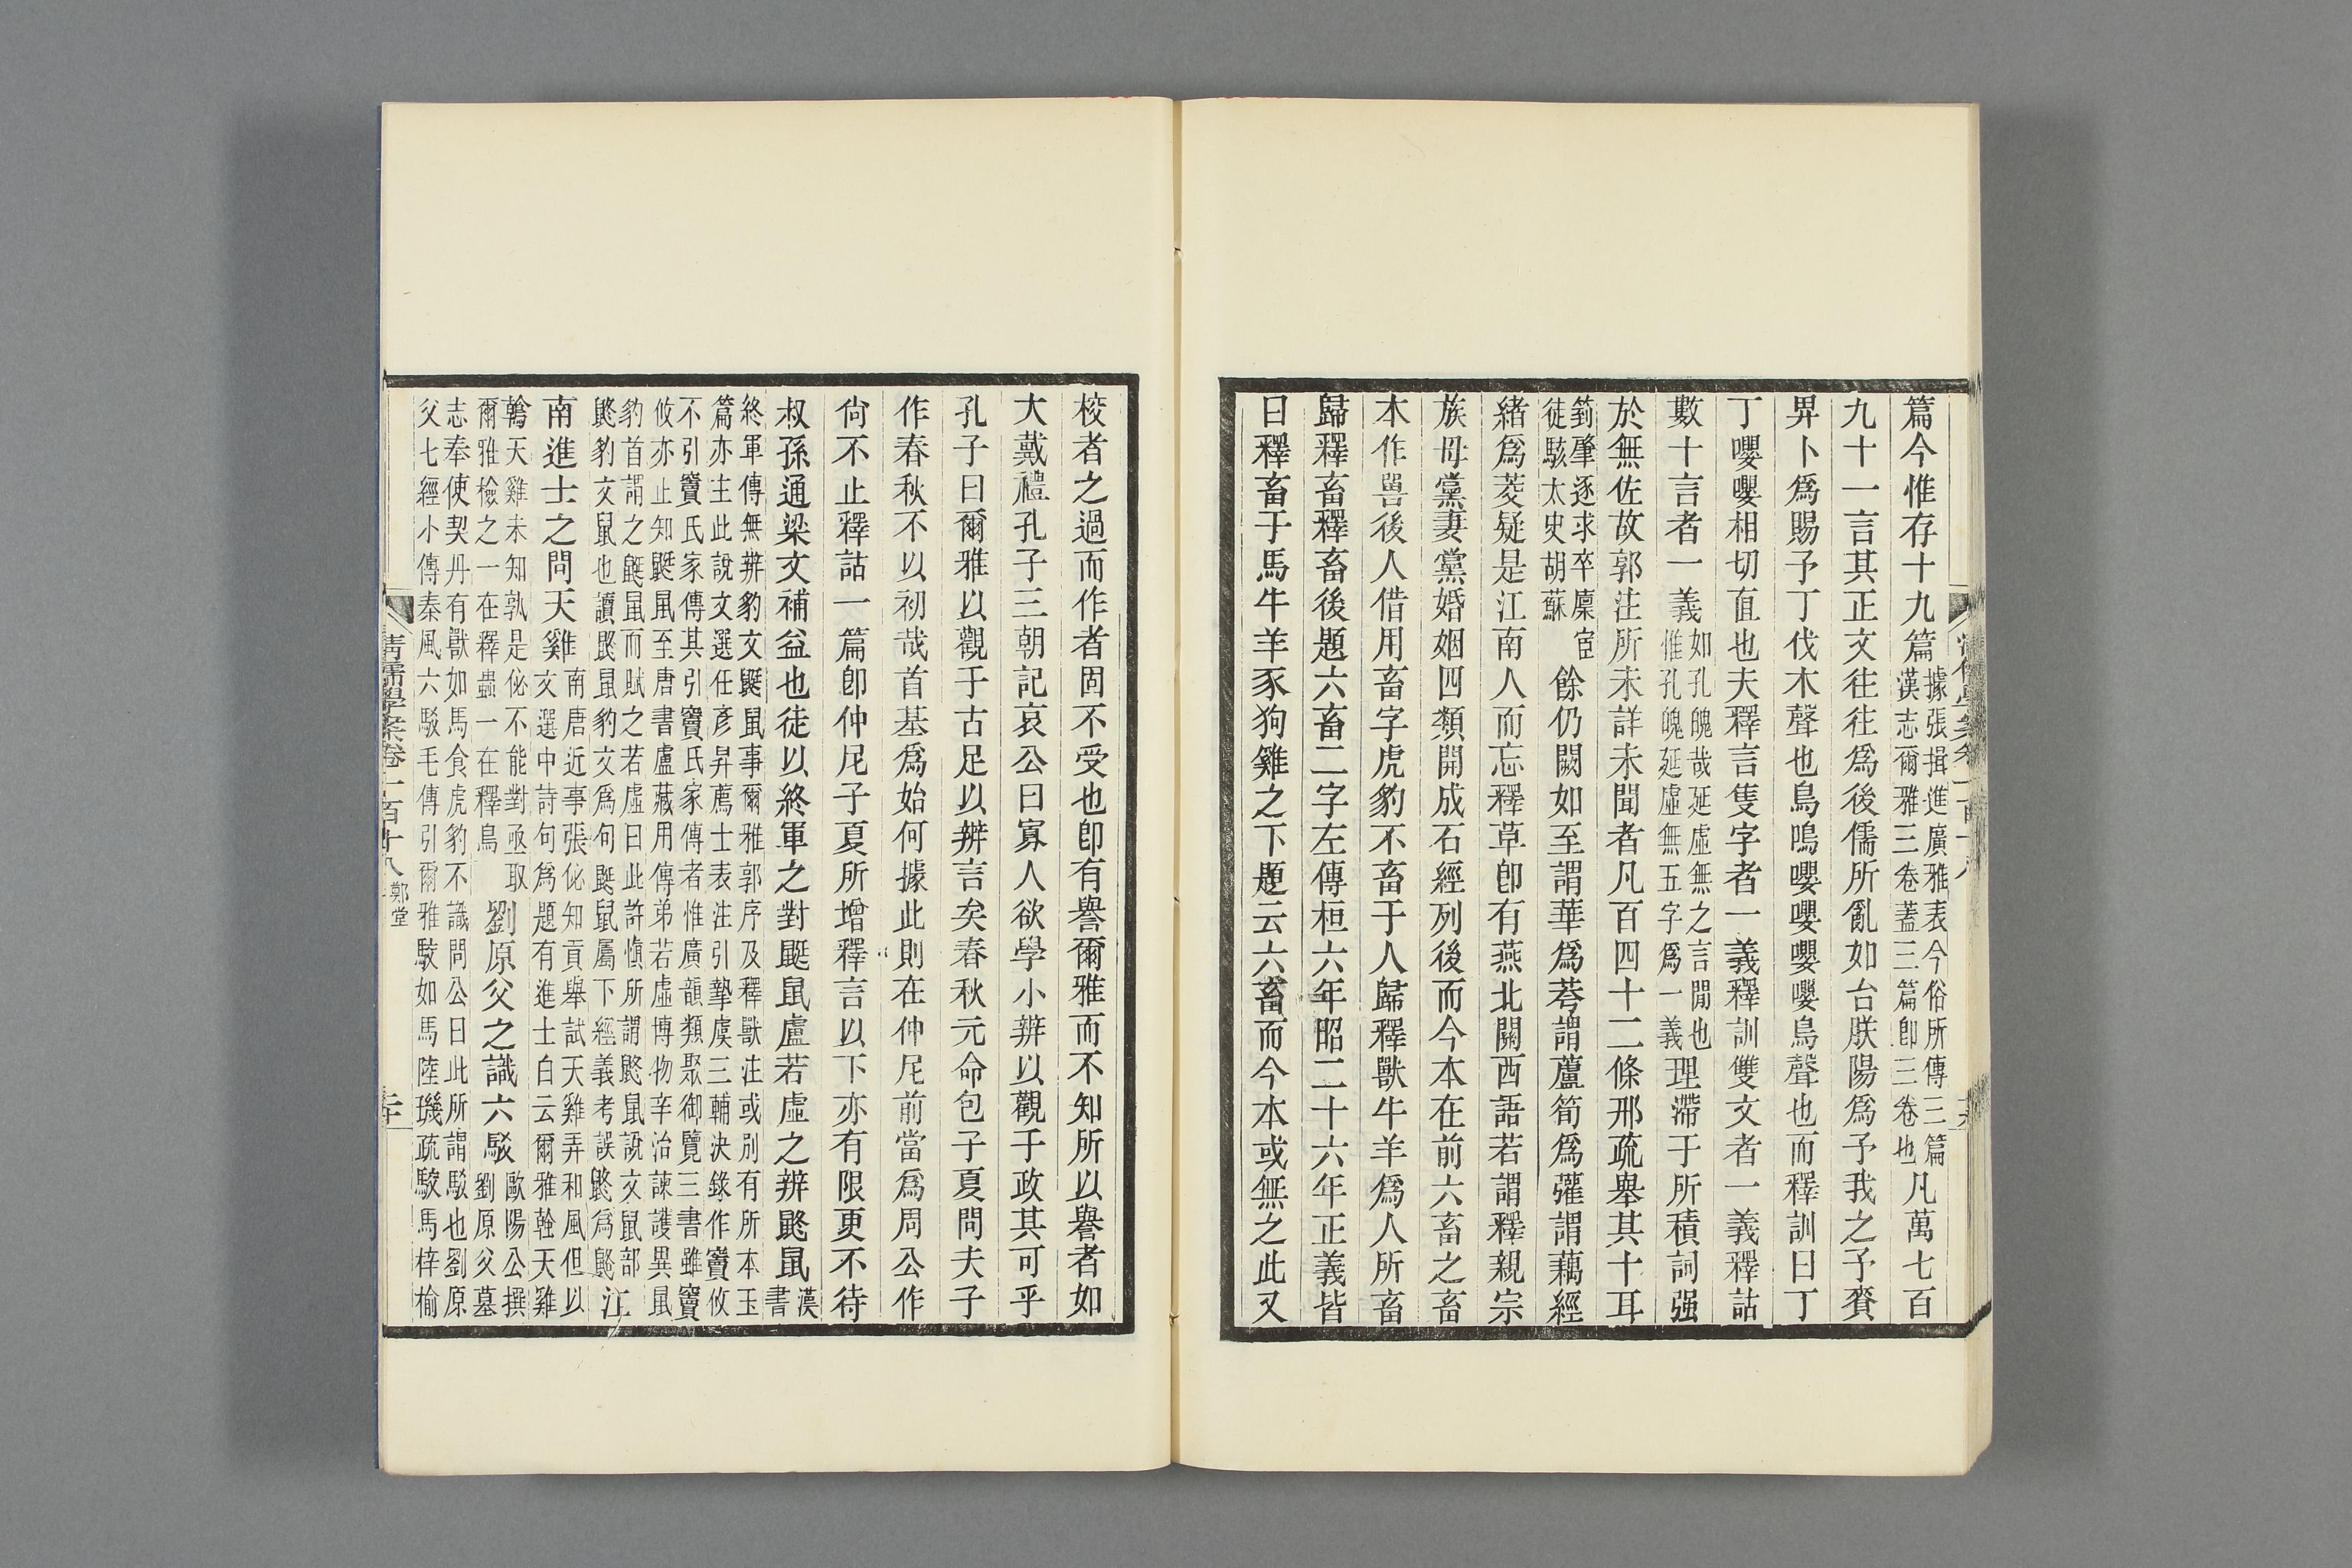 篇今惟存十九篇據張揖進廣雅表今俗所傳三篇漢志爾雅三卷蓋三篇卽三卷也凡萬七百
九十一言其正文往往爲後儒所亂如台朕陽爲予我之予賚
畀卜爲賜予丁伐木聲也鳥鳴嚶嚶嚶嚶鳥聲也而釋訓曰丁
丁嚶嚶相切直也夫釋言隻字者一義釋訓雙文者一義釋詁
數十言者一義如孔魄哉延虛無之言閒也惟孔魄延虛無五字爲一義理滯于所積詞强
於無佐故郭注所未詳未聞者凡百四十二條邢疏舉其十耳
箌肇逐求卒廩宧徒駭太史胡蘇餘仍闕如至謂華爲荂謂蘆筍爲虇謂藕經
緒爲茭疑是江南人而忘釋草卽有燕北關西語若謂釋親宗
族母黨妻黨婚姻四類開成石經列後而今本在前六畜之畜
本作嘼後人借用畜字虎豹不畜于人歸釋獸牛羊爲人所畜
歸釋畜釋畜後題六畜二字左傳桓六年昭二十六年正義皆
曰釋畜于馬牛羊豕狗雞之下題云六畜而今本或無之此又
校者之過而作者固不受也卽有譽爾雅而不知所以譽者如
大戴禮孔子三朝記哀公曰寡人欲學小辨以觀于政其可乎
孔子曰爾雅以觀于古足以辨言矣春秋元命包子夏問夫子
作春秋不以初哉首基爲始何據此則在仲尼前當爲周公作
尙不止釋詁一篇卽仲尼子夏所增釋言以下亦有限更不待
叔孫通梁文補益也徒以終軍之對鼮鼠盧若虛之辨鼨鼠漢書
終軍傳無辨豹文鼮鼠事爾雅郭序及釋獸注或別有所本玉
篇亦主此說文選任彥昇薦士表注引摯虞三輔決錄作竇攸
不引竇氏家傳其引竇氏家傳者惟廣韻類聚御覽三書雖竇
攸亦止知鼮鼠至唐書盧藏用傳弟若虛博物辛治諫護異鼠
豹首謂之鼮鼠而賦之若虛曰此許愼所謂鼨鼠說文鼠部
鼨豹文鼠也讀鼨鼠豹文爲句鼮鼠屬下經義考誤鼨爲鼨江
南進士之問天雞南唐近事張佖知貢舉試天雞弄和風但以文選中詩句爲題有進士白云爾雅螒天雞
鶾天雞未知孰是佖不能對亟取爾雅檢之一在釋蟲一在釋鳥劉原父之識六駁歐陽公撰劉原父墓
志奉使契丹有獸如馬食虎豹不識問公曰此所謂駁也劉原
父七經小傳秦風六駁毛傳引爾雅駮如馬陸璣疏駮馬梓榆
清儒學案卷一百十八
鄭堂